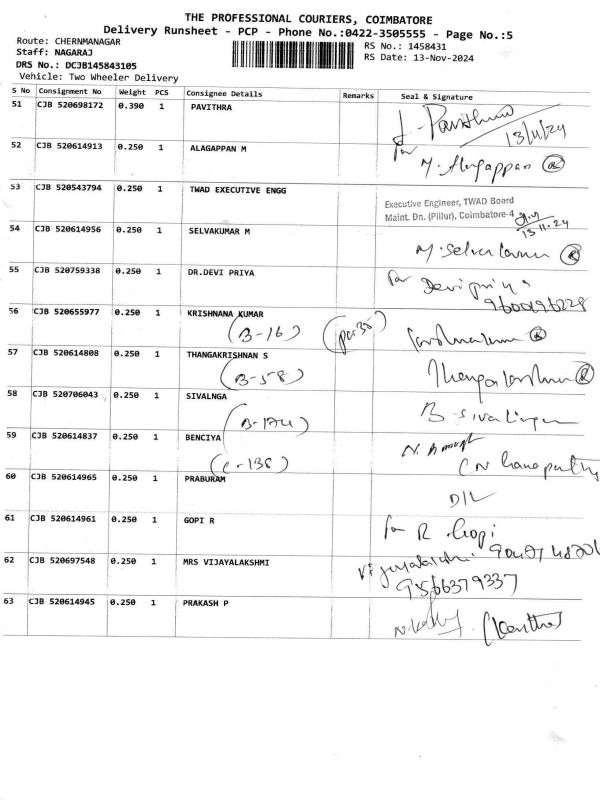 THE PROFESSIONAL COURIERS, COIMBATORE
Delivery Runsheet - PCP - Phone No.:0422-3505555 - Page No.:5
Route: CHERNMANAGAR
Staff: NAGARAJ
DRS No.: DCJB145843105
Vehicle: Two Wheeler Delivery
RS No.: 1458431
RS Date: 13-Nov-2024
S No Consignment No Weight PCS Consignee Details Remarks Seal & Signature
51 CJB 520698172 0.390 1 PAVITHRA
13/11/24
52 CJB 520614913 0.250 1 ALAGAPPAN M for
M. Alagappan R
53 CJB 520543794 0.250 1 TWAD EXECUTIVE ENGG
Executive Engineer, TWAD Board
Maint. Dn. (Pillur), Coimbatore-4
13.11.24
54 CJB 520614956 0.250 1 SELVAKUMAR M
M. Selvakumar R
55 CJB 520759338 0.250 1 DR.DEVI PRIYA for Devi priya
9600196228
56 CJB 520655977 0.250 1 KRISHNANA KUMAR
(B-16) R
57 CJB 520614808 0.250 1 THANGAKRISHNAN S
(B-58) R
58 CJB 520706043 0.250 1 SIVALNGA
(B-174) B. Sivalingam
59 CJB 520614837 0.250 1 BENCIYA
(C-138)
60 CJB 520614965 0.250 1 PRABURAM
D/L
61 CJB 520614961 0.250 1 GOPI R for R Gopi
62 CJB 520697548 0.250 1 MRS VIJAYALAKSHMI Vijayalakshmi
9566379337
63 CJB 520614945 0.250 1 PRAKASH P